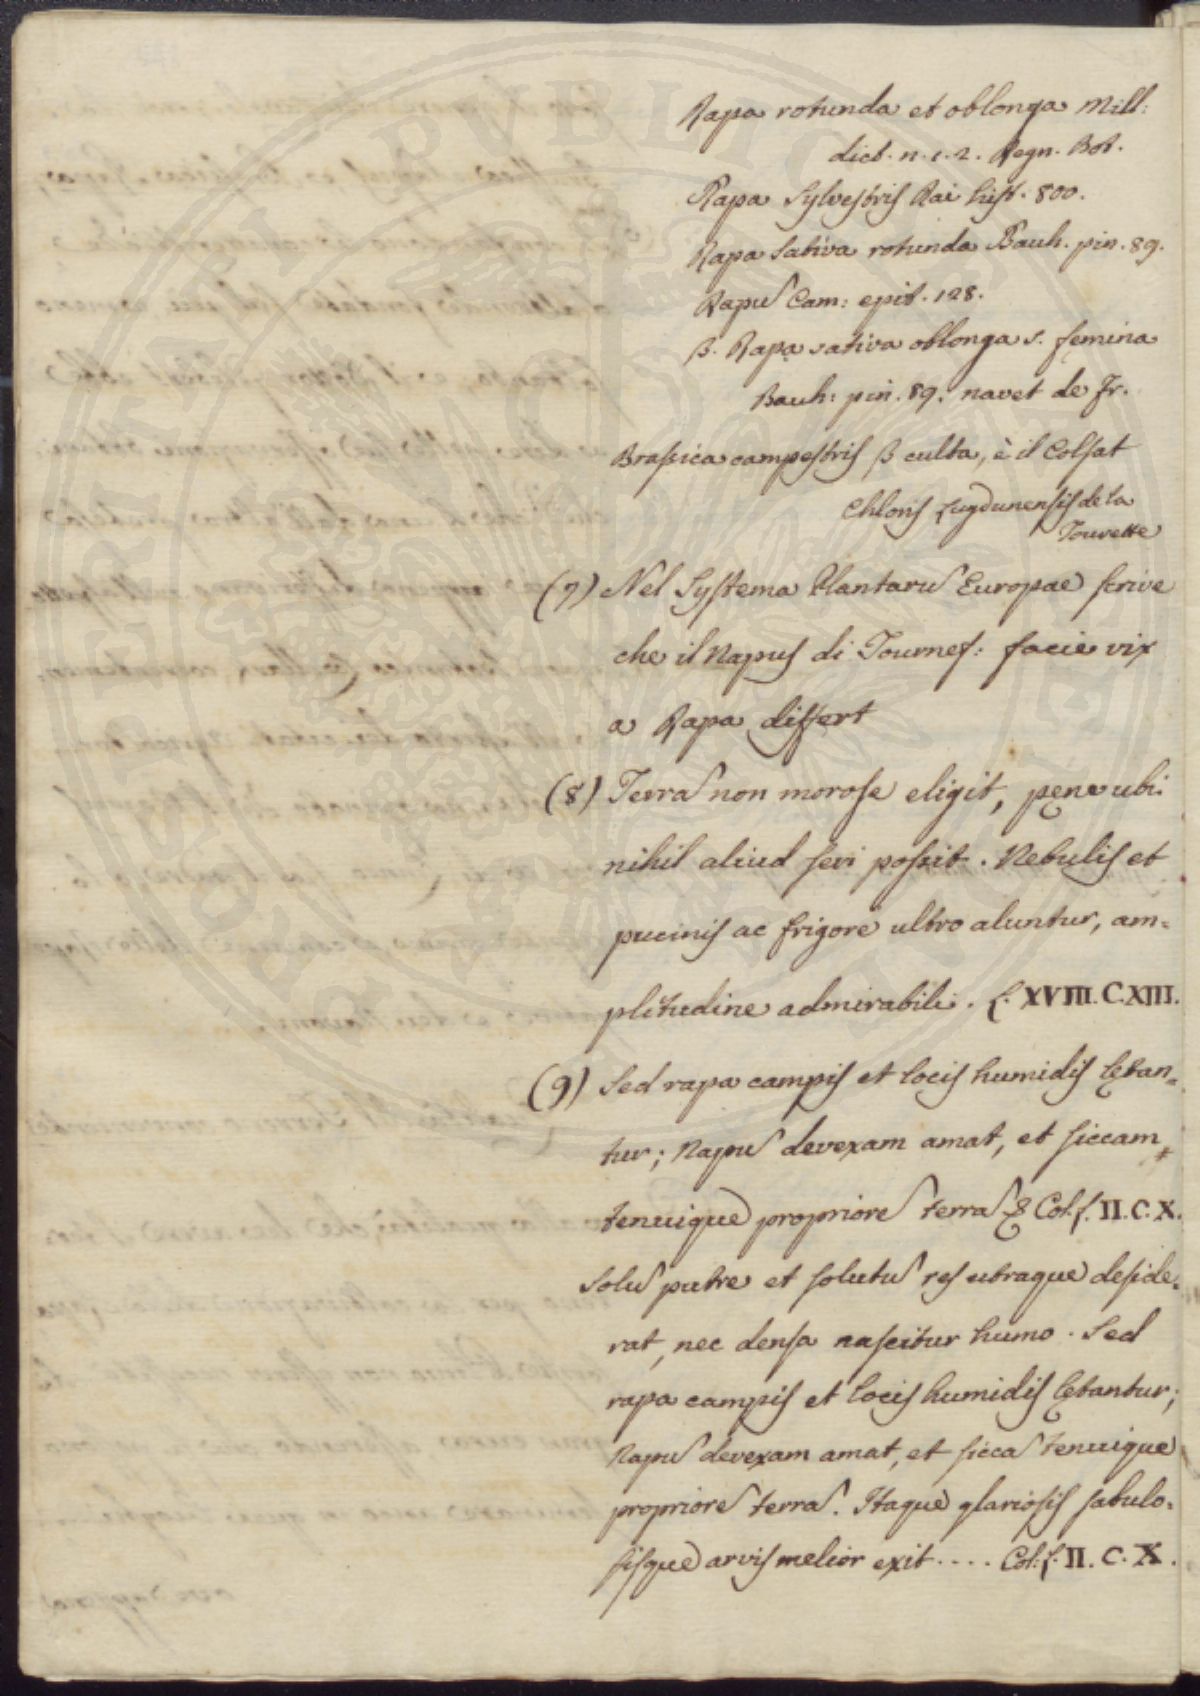 Rapa rotunda et oblonga Mill:
dict. n. 1. 2. Regn. Bot.
Rapa Sylvestris Rai hist. 800.
Rapa Sativa rotunda Bauh. pin. 89.
Rapu Cam: epit. 128.
β. Rapa sativa oblonga s. femina
Bauh: pin. 89. navet de Fr.
Brassica campestris β culta, è il Colsat
Chloris Lugdunensis de la
Tourette
(7) Nel Systema Plantaru Europae scrive
che il Napus di Tournef: facie vix
a Rapa differt
(8) Terra non morose eligit, pęne ubi
nihil aliud seri possit. Nebulis et
pucinis ac frigore ultro aluntur, am=
plitudine admirabili. L. XVIII. C. XIII.
(9) Sed rapa campis et locis humidis lętan=
tur; Napu devexam amat, et siccam
tenuique propriore terra & Col. L. II. C. X.
Solu putre et solutu res utraque deside=
rat, nec densa nascitur humo. Sed
rapa campis et locis humidis lętantur;
Napu devexam amat, et sicca tenuique
propriore terra. Itaque glariosis sabulo=
sisque arvis melior exit.... Col: L. II. C. X.